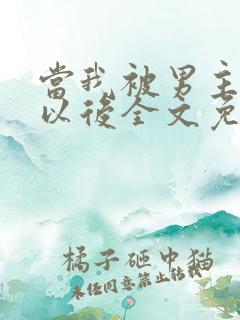 當我被男主
以後全文免
橘子砸中猫
未经同意禁止转载